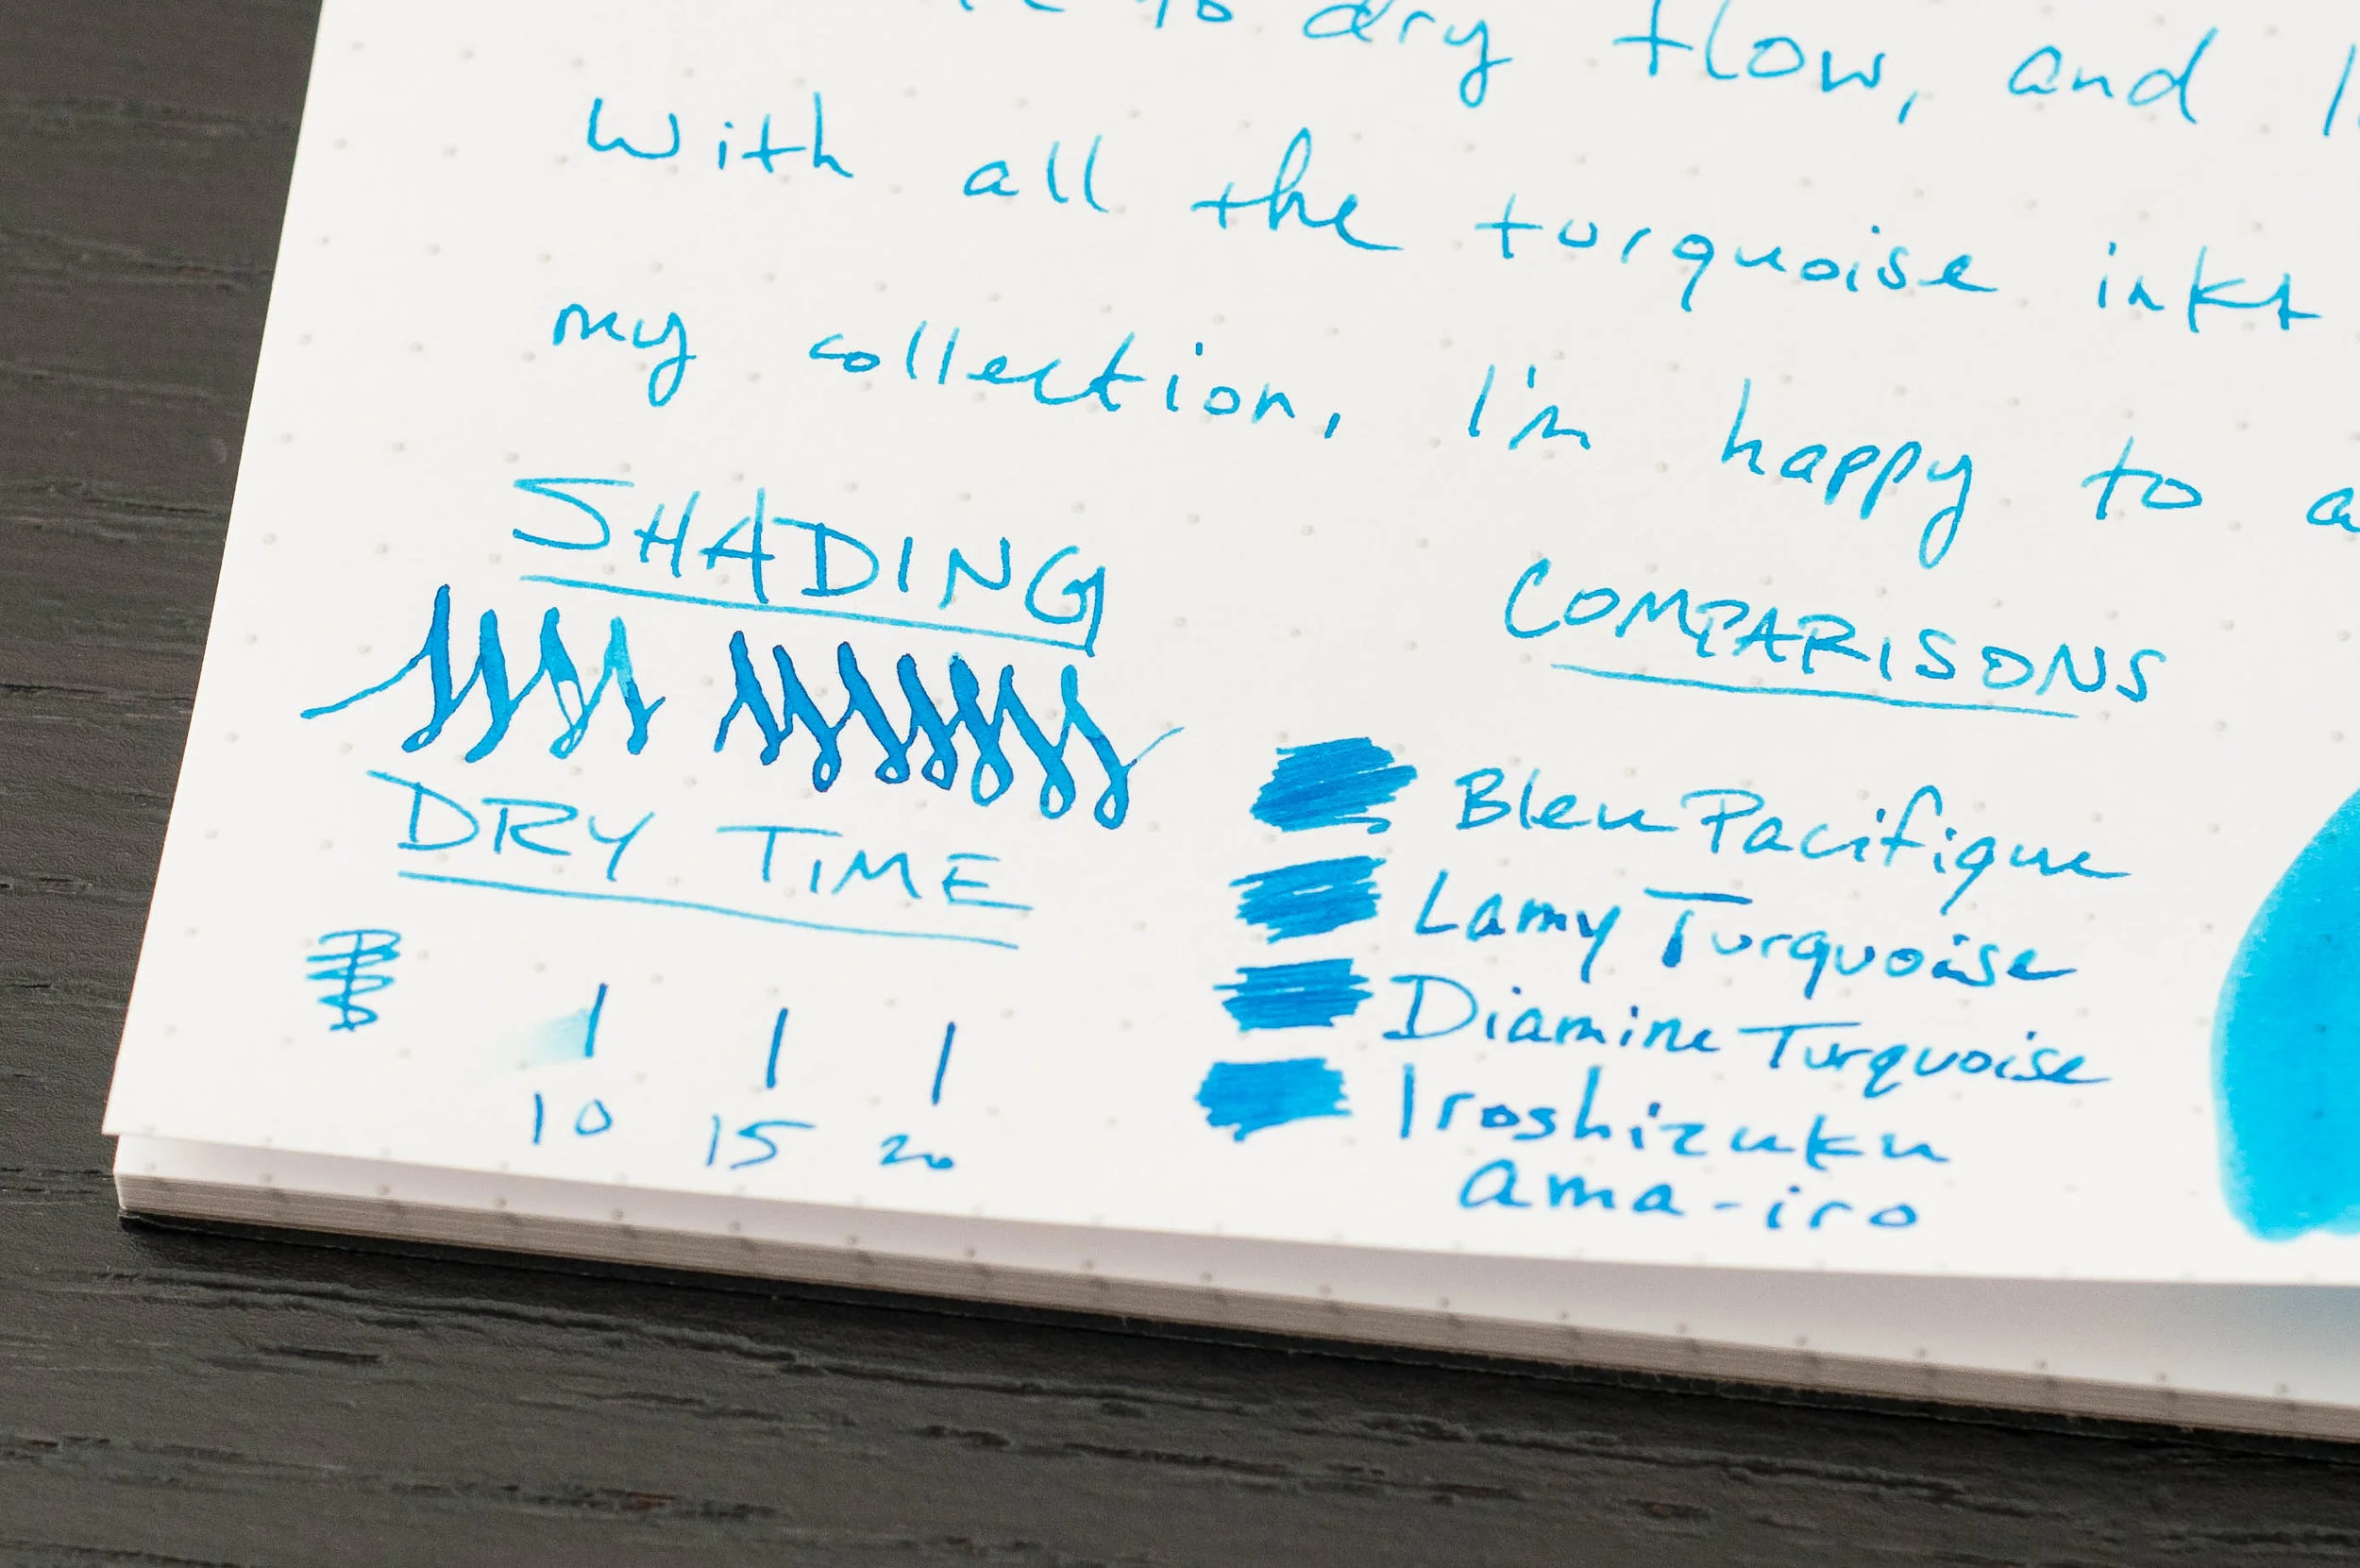 to dry flow, and
with all the turquoise inks
my collection, I'm happy to
SHADING
COMPARISONS
Bleu Pacifique
Lamy Turquoise
Diamine Turquoise
Iroshizuku
ama-iro
DRY TIME
10 15 20